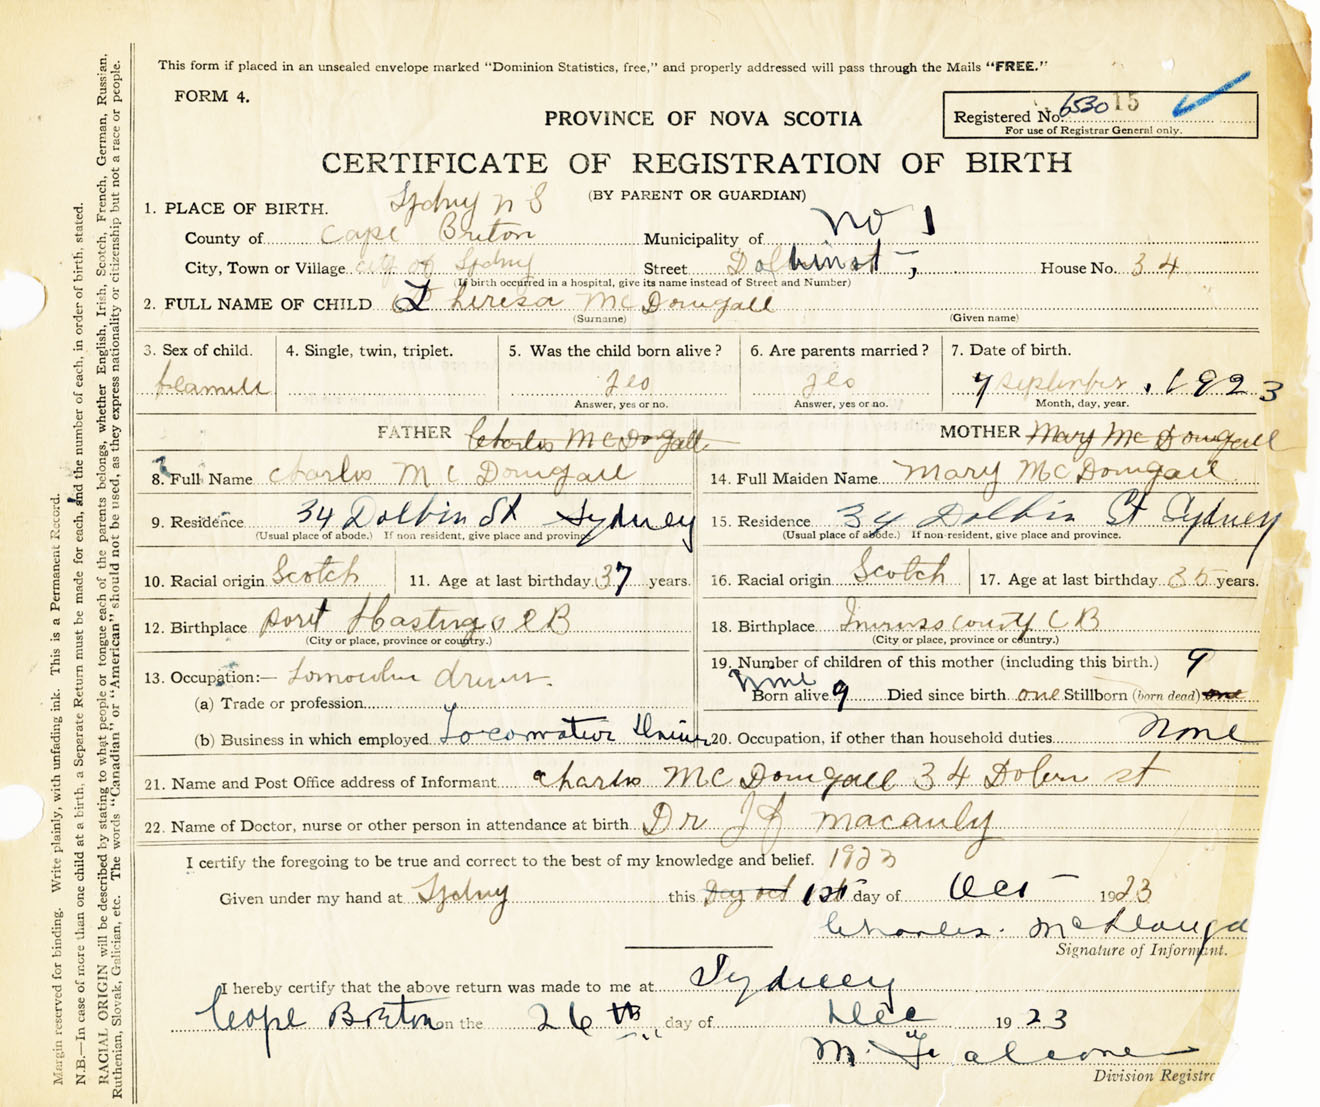 This form if placed in an unsealed envelope marked "Dominion Statistics, free," and properly addressed will pass through the Mails "FREE."
FORM 4.
PROVINCE OF NOVA SCOTIA
Registered No. 6530 15
For use of Registrar General only.
CERTIFICATE OF REGISTRATION OF BIRTH
(BY PARENT OR GUARDIAN)
1. PLACE OF BIRTH. Sydny N S
County of Cape Breton Municipality of No 1
City, Town or Village city of Sydny Street Dolbin st House No. 34
(If birth occurred in a hospital, give its name instead of Street and Number)
2. FULL NAME OF CHILD Theresa McDougall
(Surname) (Given name)
3. Sex of child. 4. Single, twin, triplet. 5. Was the child born alive? 6. Are parents married? 7. Date of birth.
feamill yes yes 7 September, 1923
Answer, yes or no. Answer, yes or no. Month, day, year.
FATHER Charles McDougall MOTHER Mary McDougall
8. Full Name Charles McDougall 14. Full Maiden Name Mary McDougall
9. Residence 34 Dolbin St Sydney 15. Residence 34 Dolbin St Sydney
(Usual place of abode.) If non resident, give place and province. (Usual place of abode.) If non-resident, give place and province.
10. Racial origin Scotch 11. Age at last birthday 37 years. 16. Racial origin Scotch 17. Age at last birthday 35 years.
12. Birthplace Port Hastings C B 18. Birthplace county C B
(City or place, province or country.) (City or place, province or country.)
13. Occupation:— 19. Number of children of this mother (including this birth.) 9
nine
(a) Trade or profession Born alive 9 Died since birth one Stillborn (born dead) one
(b) Business in which employed Locomotive Driver 20. Occupation, if other than household duties None
21. Name and Post Office address of Informant Charles McDougall 34 Dolben st
22. Name of Doctor, nurse or other person in attendance at birth Dr J J Macauly
I certify the foregoing to be true and correct to the best of my knowledge and belief. 1923
Given under my hand at Sydny this 1st day of Oct 1923
Charles McDougd
Signature of Informant.
I hereby certify that the above return was made to me at Sydney
Cape Breton on the 26th day of Dec 1923
Division Registra
Margin reserved for binding. Write plainly, with unfading ink. This is a Permanent Record.
N.B.—In case of more than one child at a birth, a Separate Return must be made for each, and the number of each, in order of birth, stated.
RACIAL ORIGIN will be described by stating to what people or tongue each of the parents belongs, whether English, Irish, Scotch, French, German, Russian,
Ruthenian, Slovak, Galician, etc. The words "Canadian" or "American" should not be used, as they express nationality or citizenship but not a race or people.